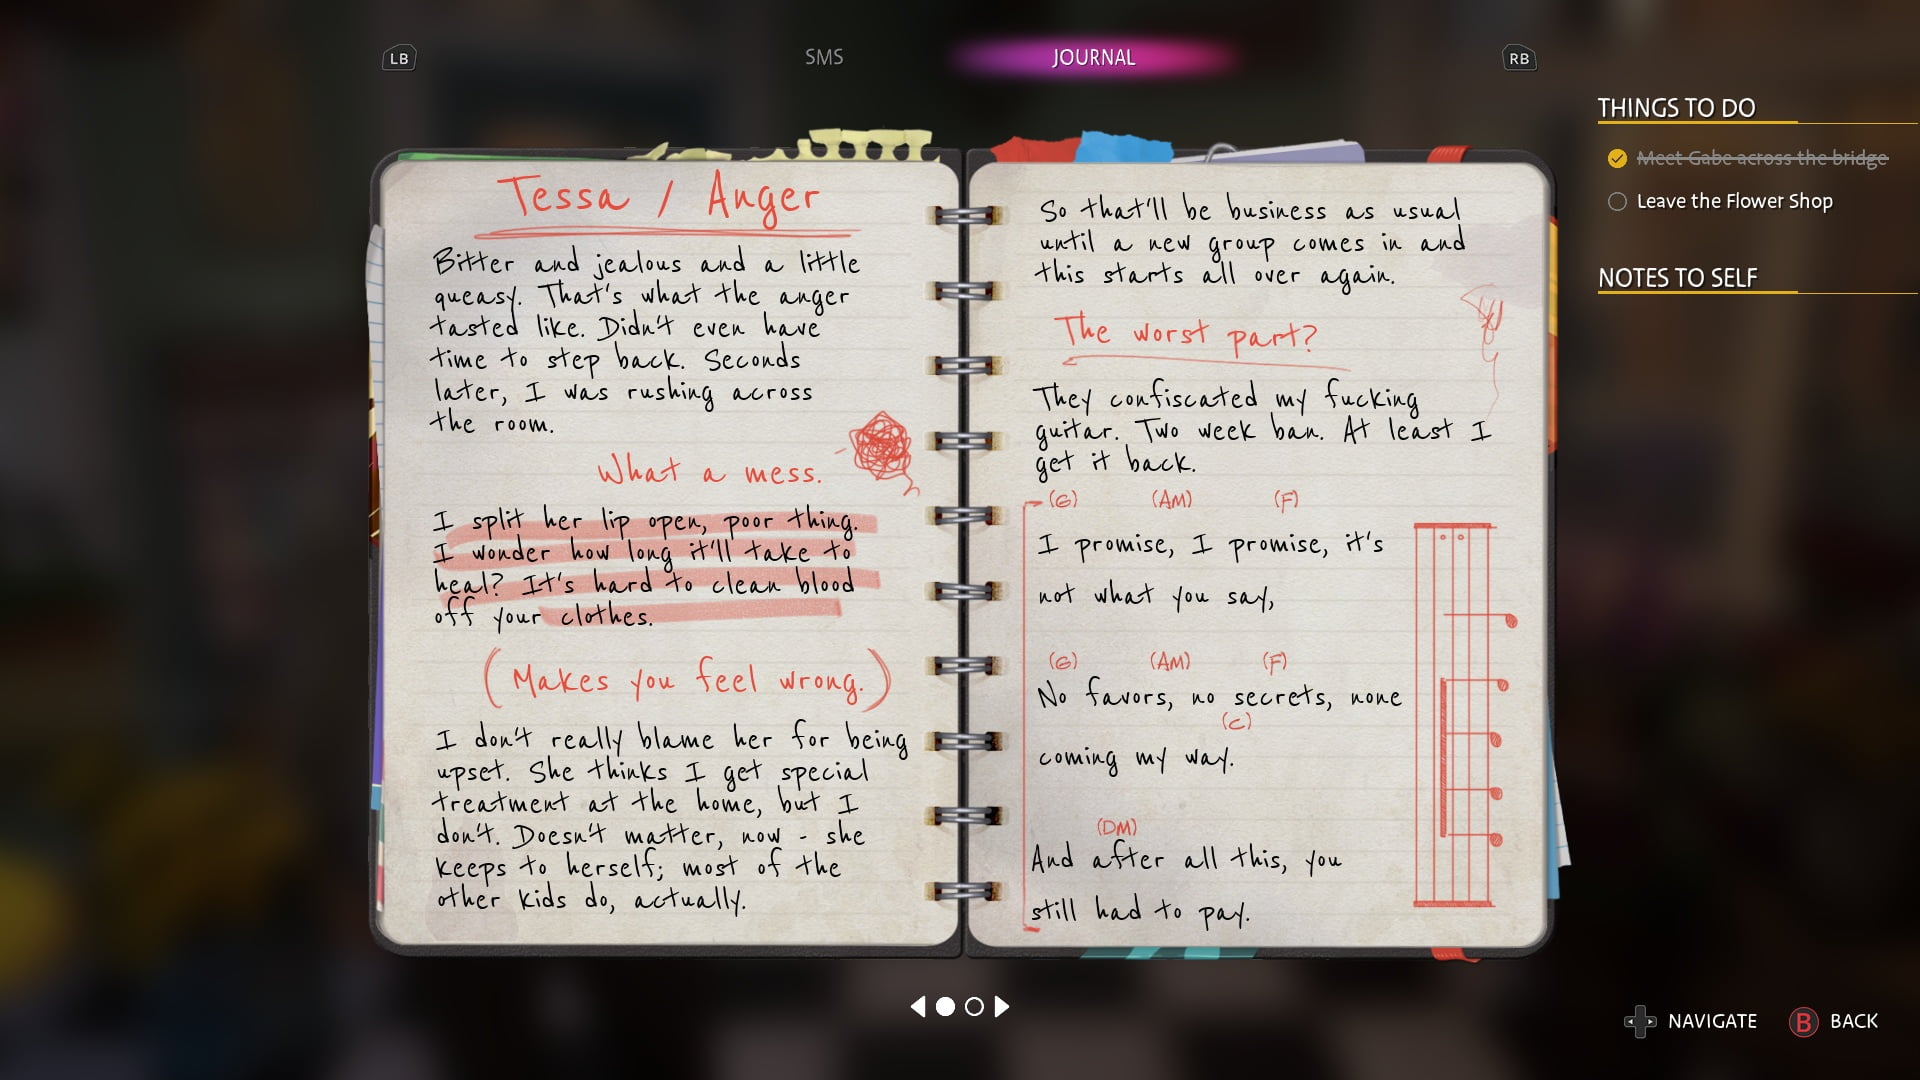 LB
SMS
JOURNAL
RB
THINGS TO DO
Meet Gabe across the bridge
Leave the Flower Shop
NOTES TO SELF
Tessa / Anger
Bitter and jealous and a little
queasy. That's what the anger
tasted like. Didn't even have
time to step back. Seconds
later, I was rushing across
the room.
What a mess.
I split her lip open, poor thing.
I wonder how long it'll take to
heal? It's hard to clean blood
off your clothes.
(Makes you feel wrong.)
I don't really blame her for being
upset. She thinks I get special
treatment at the home, but I
don't. Doesn't matter, now - she
keeps to herself; most of the
other kids do, actually.
So that'll be business as usual
until a new group comes in and
this starts all over again.
The worst part?
They confiscated my fucking
guitar. Two week ban. At least I
get it back.
(G) (AM) (F)
I promise, I promise, it's
not what you say,
(G) (AM) (F)
No favors, no secrets, none
(C)
coming my way.
(DM)
And after all this, you
still had to pay.
NAVIGATE
B BACK